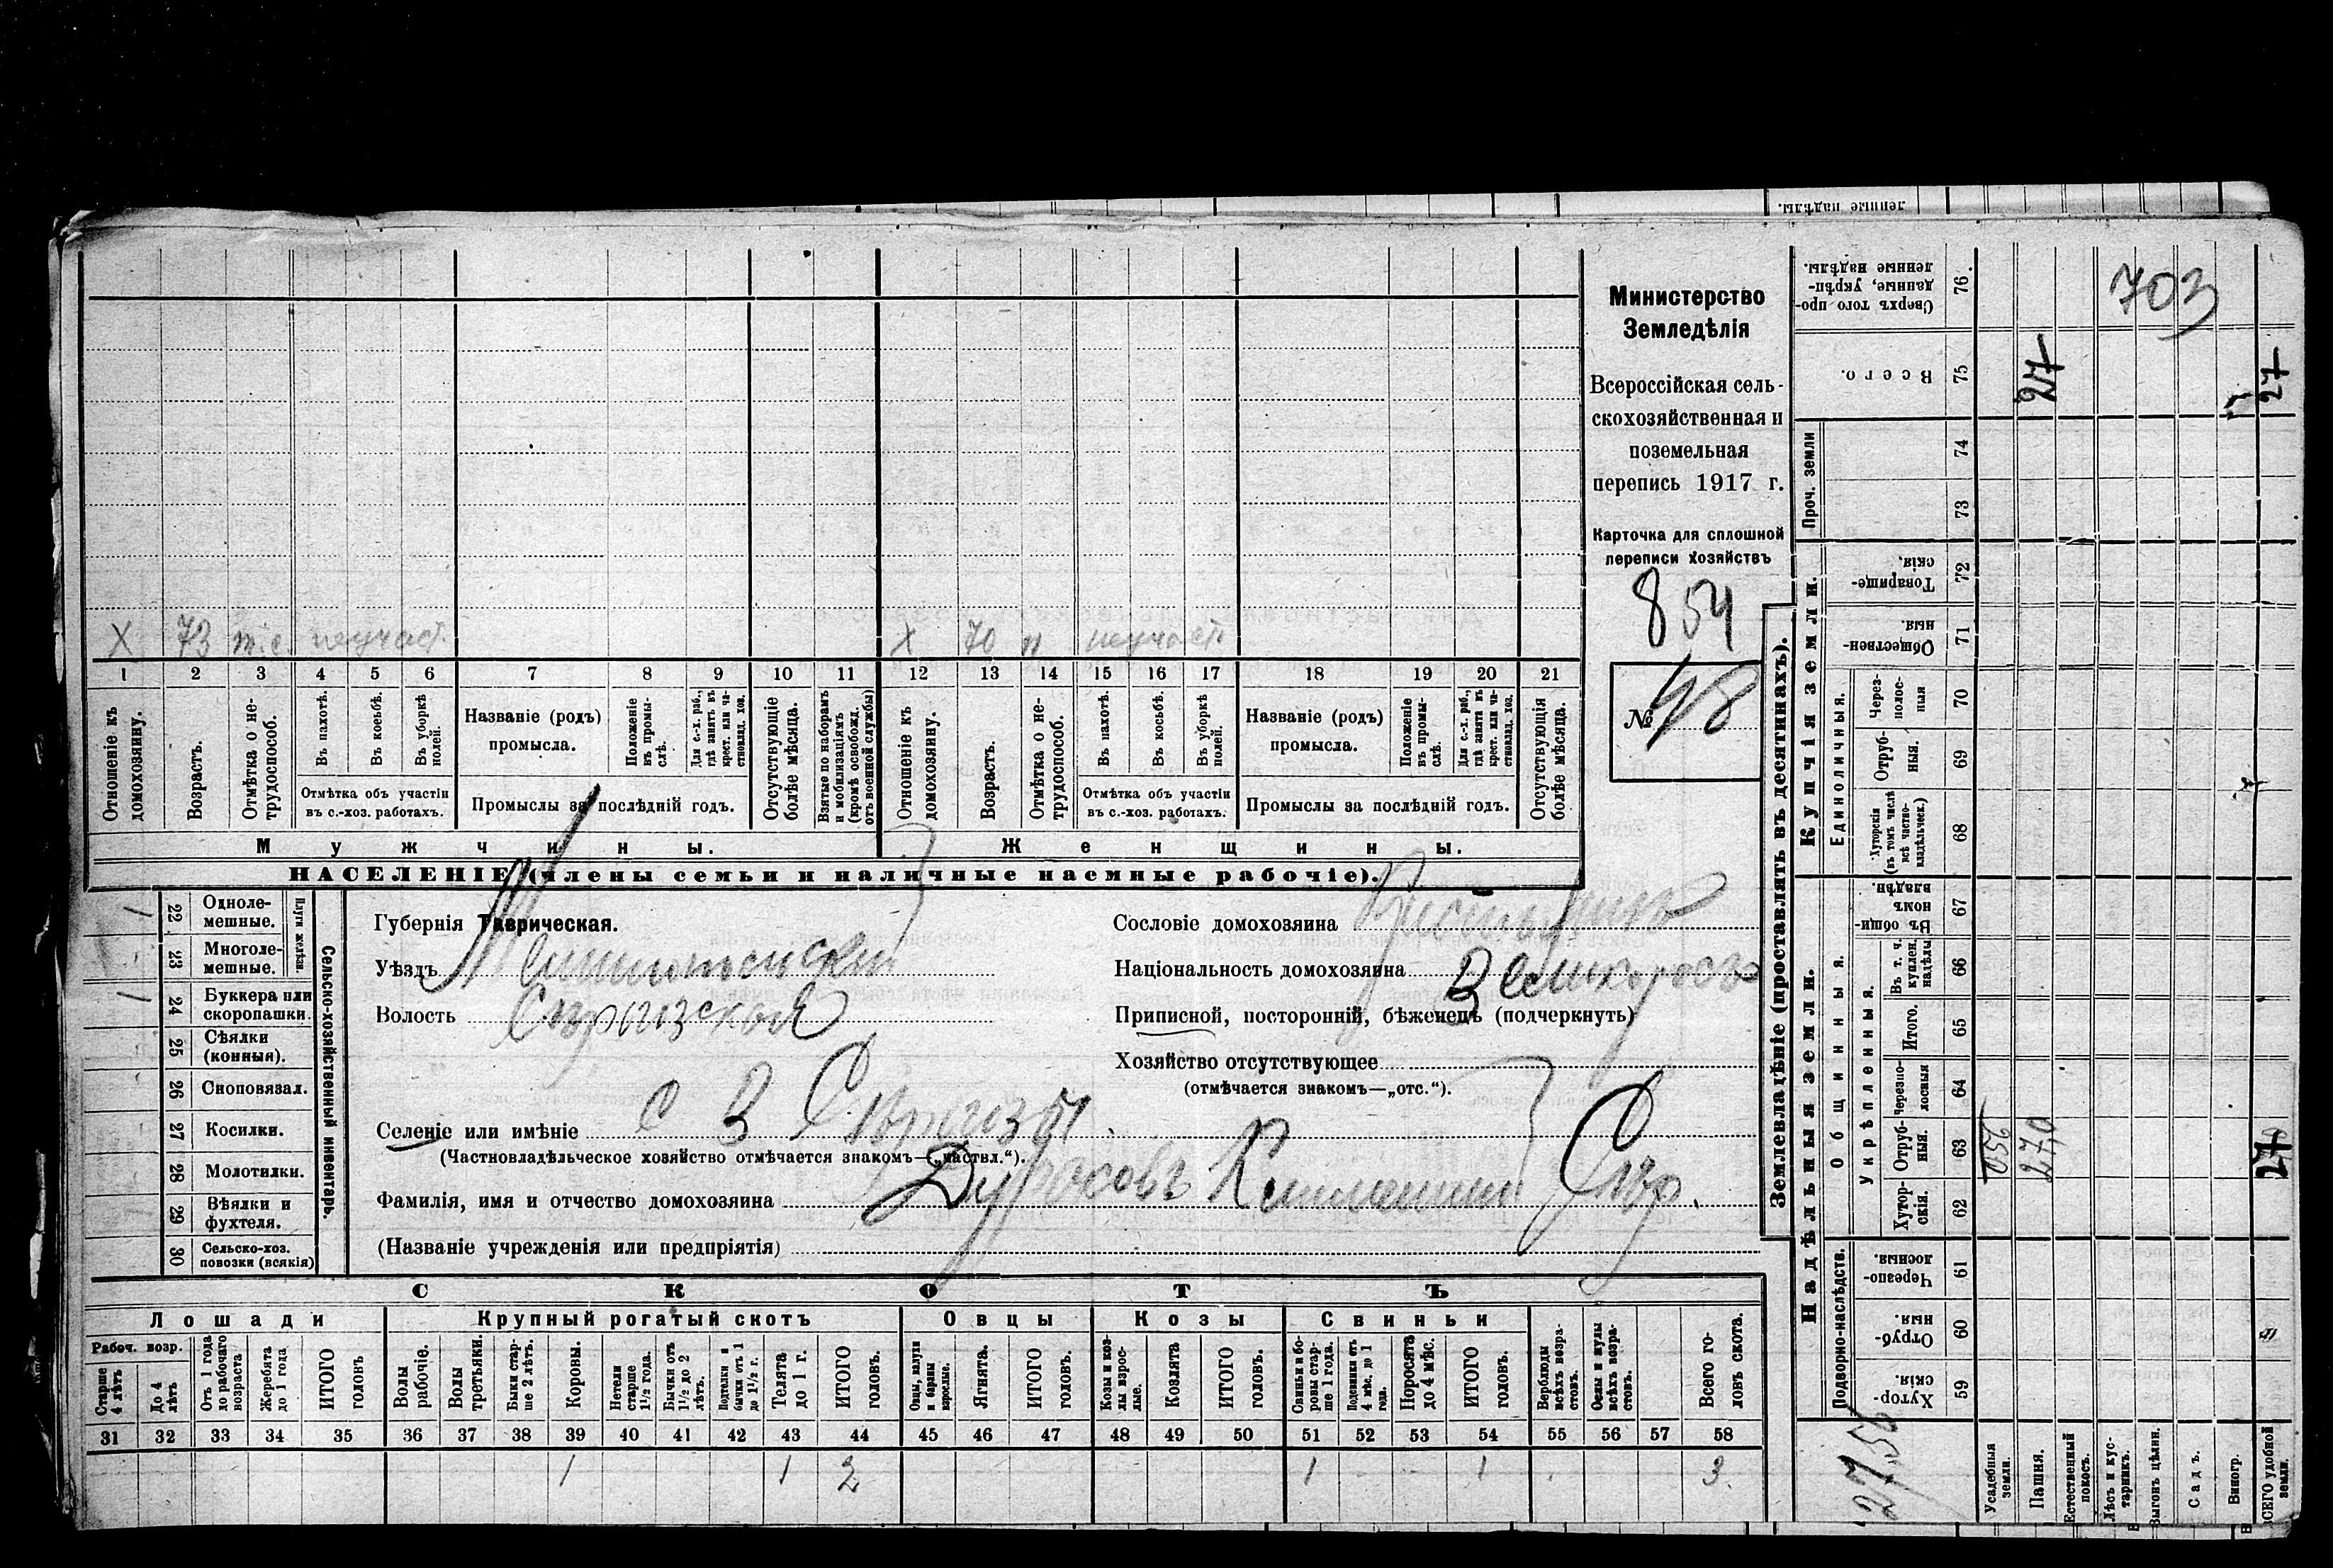 ленные надѣлы.
Х 73 н.с. неучаст.
Х 70 н неучаст.
1 2 3 4 5 6 7 8 9 10 11 12 13 14 15 16 17 18 19 20 21
Отношеніе къ домохозяину.
Возрастъ.
Отмѣтка о нетрудоспособ.
Въ пахотѣ.
Въ косьбѣ.
Въ уборкѣ полей.
Отмѣтка объ участіи
въ с.-хоз. работахъ.
Названіе (родъ)
промысла.
Положеніе въ промыслѣ.
Для с.-х. раб., гдѣ занятъ въ крест. или частновлад. хоз.
Промыслы за послѣдній годъ.
Отсутствующіе болѣе мѣсяца.
Взятые по наборамъ и мобилизаціямъ (кромѣ освобожд. отъ военной службы)
Отношеніе къ домохозяину.
Возрастъ.
Отмѣтка о нетрудоспособ.
Въ пахотѣ.
Въ косьбѣ.
Въ уборкѣ полей.
Отмѣтка объ участіи
въ с.-хоз. работахъ.
Названіе (родъ)
промысла.
Положеніе въ промыслѣ.
Для с.-х. раб., гдѣ занята въ крест. или частновлад. хоз.
Промыслы за послѣдній годъ.
Отсутствующія болѣе мѣсяца.
Мужчины.
Женщины.
НАСЕЛЕНІЕ (члены семьи и наличные наемные рабочіе).
Министерство
Земледѣлія
Всероссійская сель-
скохозяйственная и
поземельная
перепись 1917 г.
Карточка для сплошной
переписи хозяйствъ
854
№ 48
22 Однолемешные.
23 Многолемешные.
Плуги желѣзн.
24 Буккера или скоропашки.
25 Сѣялки (конныя).
26 Сноповязал.
27 Косилки.
28 Молотилки.
29 Вѣялки и фухтеля.
30 Сельско-хоз. повозки (всякія)
Сельско-хозяйственный инвентарь.
Губернія Таврическая.
Уѣздъ Мелитопольскій
Волость
Селеніе или имѣніе
(Частновладѣльческое хозяйство отмѣчается знакомъ—„частвл.“).
Фамилія, имя и отчество домохозяина
(Названіе учрежденія или предпріятія)
Сословіе домохозяина Крестьянинъ
Національность домохозяина Великороссъ
Приписной, посторонній, бѣженецъ (подчеркнуть)
Хозяйство отсутствующее
(отмѣчается знакомъ—„отс.“).
СКОТЪ
Лошади
Крупный рогатый скотъ
Овцы
Козы
Свиньи
Рабоч. возр.
Старше 4 лѣтъ
До 4 лѣтъ
Отъ 1 года до рабочаго возраста
Жеребята до 1 года
ИТОГО головъ
Волы рабочіе.
Волы третьяки.
Быки старше 2 лѣтъ.
Коровы.
Нетели старше 1½ года.
Бычки отъ 1½ до 2 лѣтъ.
Подтелки и бычки отъ 1 до 1½ г.
Телята до 1 г.
ИТОГО головъ.
Овцы, валухи и бараны взрослые.
Ягнята.
ИТОГО головъ.
Козы и козлы взрослые.
Козлята
ИТОГО головъ.
Свиньи и боровы старше 1 года.
Подсвинки отъ 4 мѣс. до 1 года.
Поросята до 4 мѣс.
ИТОГО головъ.
Верблюды всѣхъ возрастовъ.
Ослы и мулы всѣхъ возрастовъ.
Всего головъ скота.
31 32 33 34 35 36 37 38 39 40 41 42 43 44 45 46 47 48 49 50 51 52 53 54 55 56 57 58
1 1 2 1 1 3
Землевладѣніе (проставлять въ десятинахъ).
Надѣльныя земли.
Купчія земли.
Проч. земли
Подворно-наслѣдств.
Общинныя.
Укрѣпленныя.
Единоличныя.
Сверхъ того проданные, укрѣпленные надѣлы.
76.
Всего.
75
74
73
Товарищескія.
72
Общественныя.
71
Черезполосныя
70
Отрубныя.
69
Хуторскія (въ томъ числѣ всѣ частновладѣльческ.)
68
Въ общинномъ владѣн.
67
Въ т. ч. куплен. надѣлы
66
Итого.
65
Черезполосныя
64
Отрубныя.
63
Хуторскія.
62
Черезполосныя.
61
Отрубныя.
60
Хуторскія.
59
703
27
27
056
270
27
27,56
Усадебныя земли.
Пашня.
Естественный покосъ.
Лѣсъ и кустарникъ.
Выгонъ цѣлин.
Садъ.
Виногр.
ВСЕГО удобной земли.